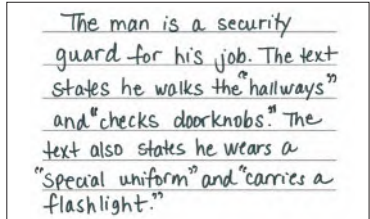 The man is a security
guard for his job. The text
states he walks the "hallways"
and "checks doorknobs." The
text also states he wears a
"special uniform" and "carries a
flashlight."